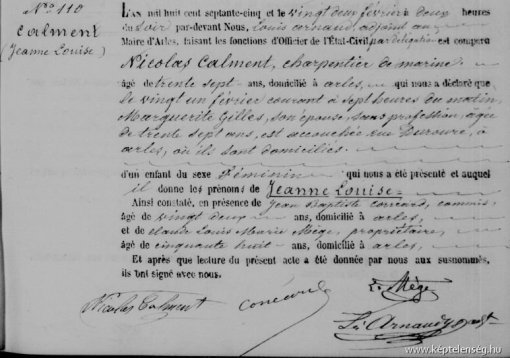 N° 110
Calment
(Jeanne Louise)
L'AN mil huit cent septante-cinq et le vingt deux février à deux heures
du soir par-devant Nous, Louis Arnaud, adjoint au
Maire d'Arles, faisant les fonctions d'Officier de l'État-Civil par délégation est comparu
Nicolas Calment, charpentier de marine
âgé de trente sept ans, domicilié à arles, qui nous a déclaré que
le vingt un février courant à sept heures du matin,
Marguerite Gilles, son épouse, sans profession, agée
de trente sept ans, est accouchée rue Duroure, à
arles, où ils sont domiciliés.
d'un enfant du sexe Féminin qui nous a été présenté et auquel
il donne les prénoms de Jeanne Louise
Ainsi constaté, en présence de Jean Baptiste commis,
âgé de vingt deux ans, domicilié à arles,
et de Louis Marie Mège, propriétaire,
âgé de cinquante huit ans, domicilié à arles,
Et après que lecture du présent acte a été donnée par nous aux susnommés,
ils ont signé avec nous.
Mège
Nicolas Calment
Ls Arnaud
www.keptelenseg.hu